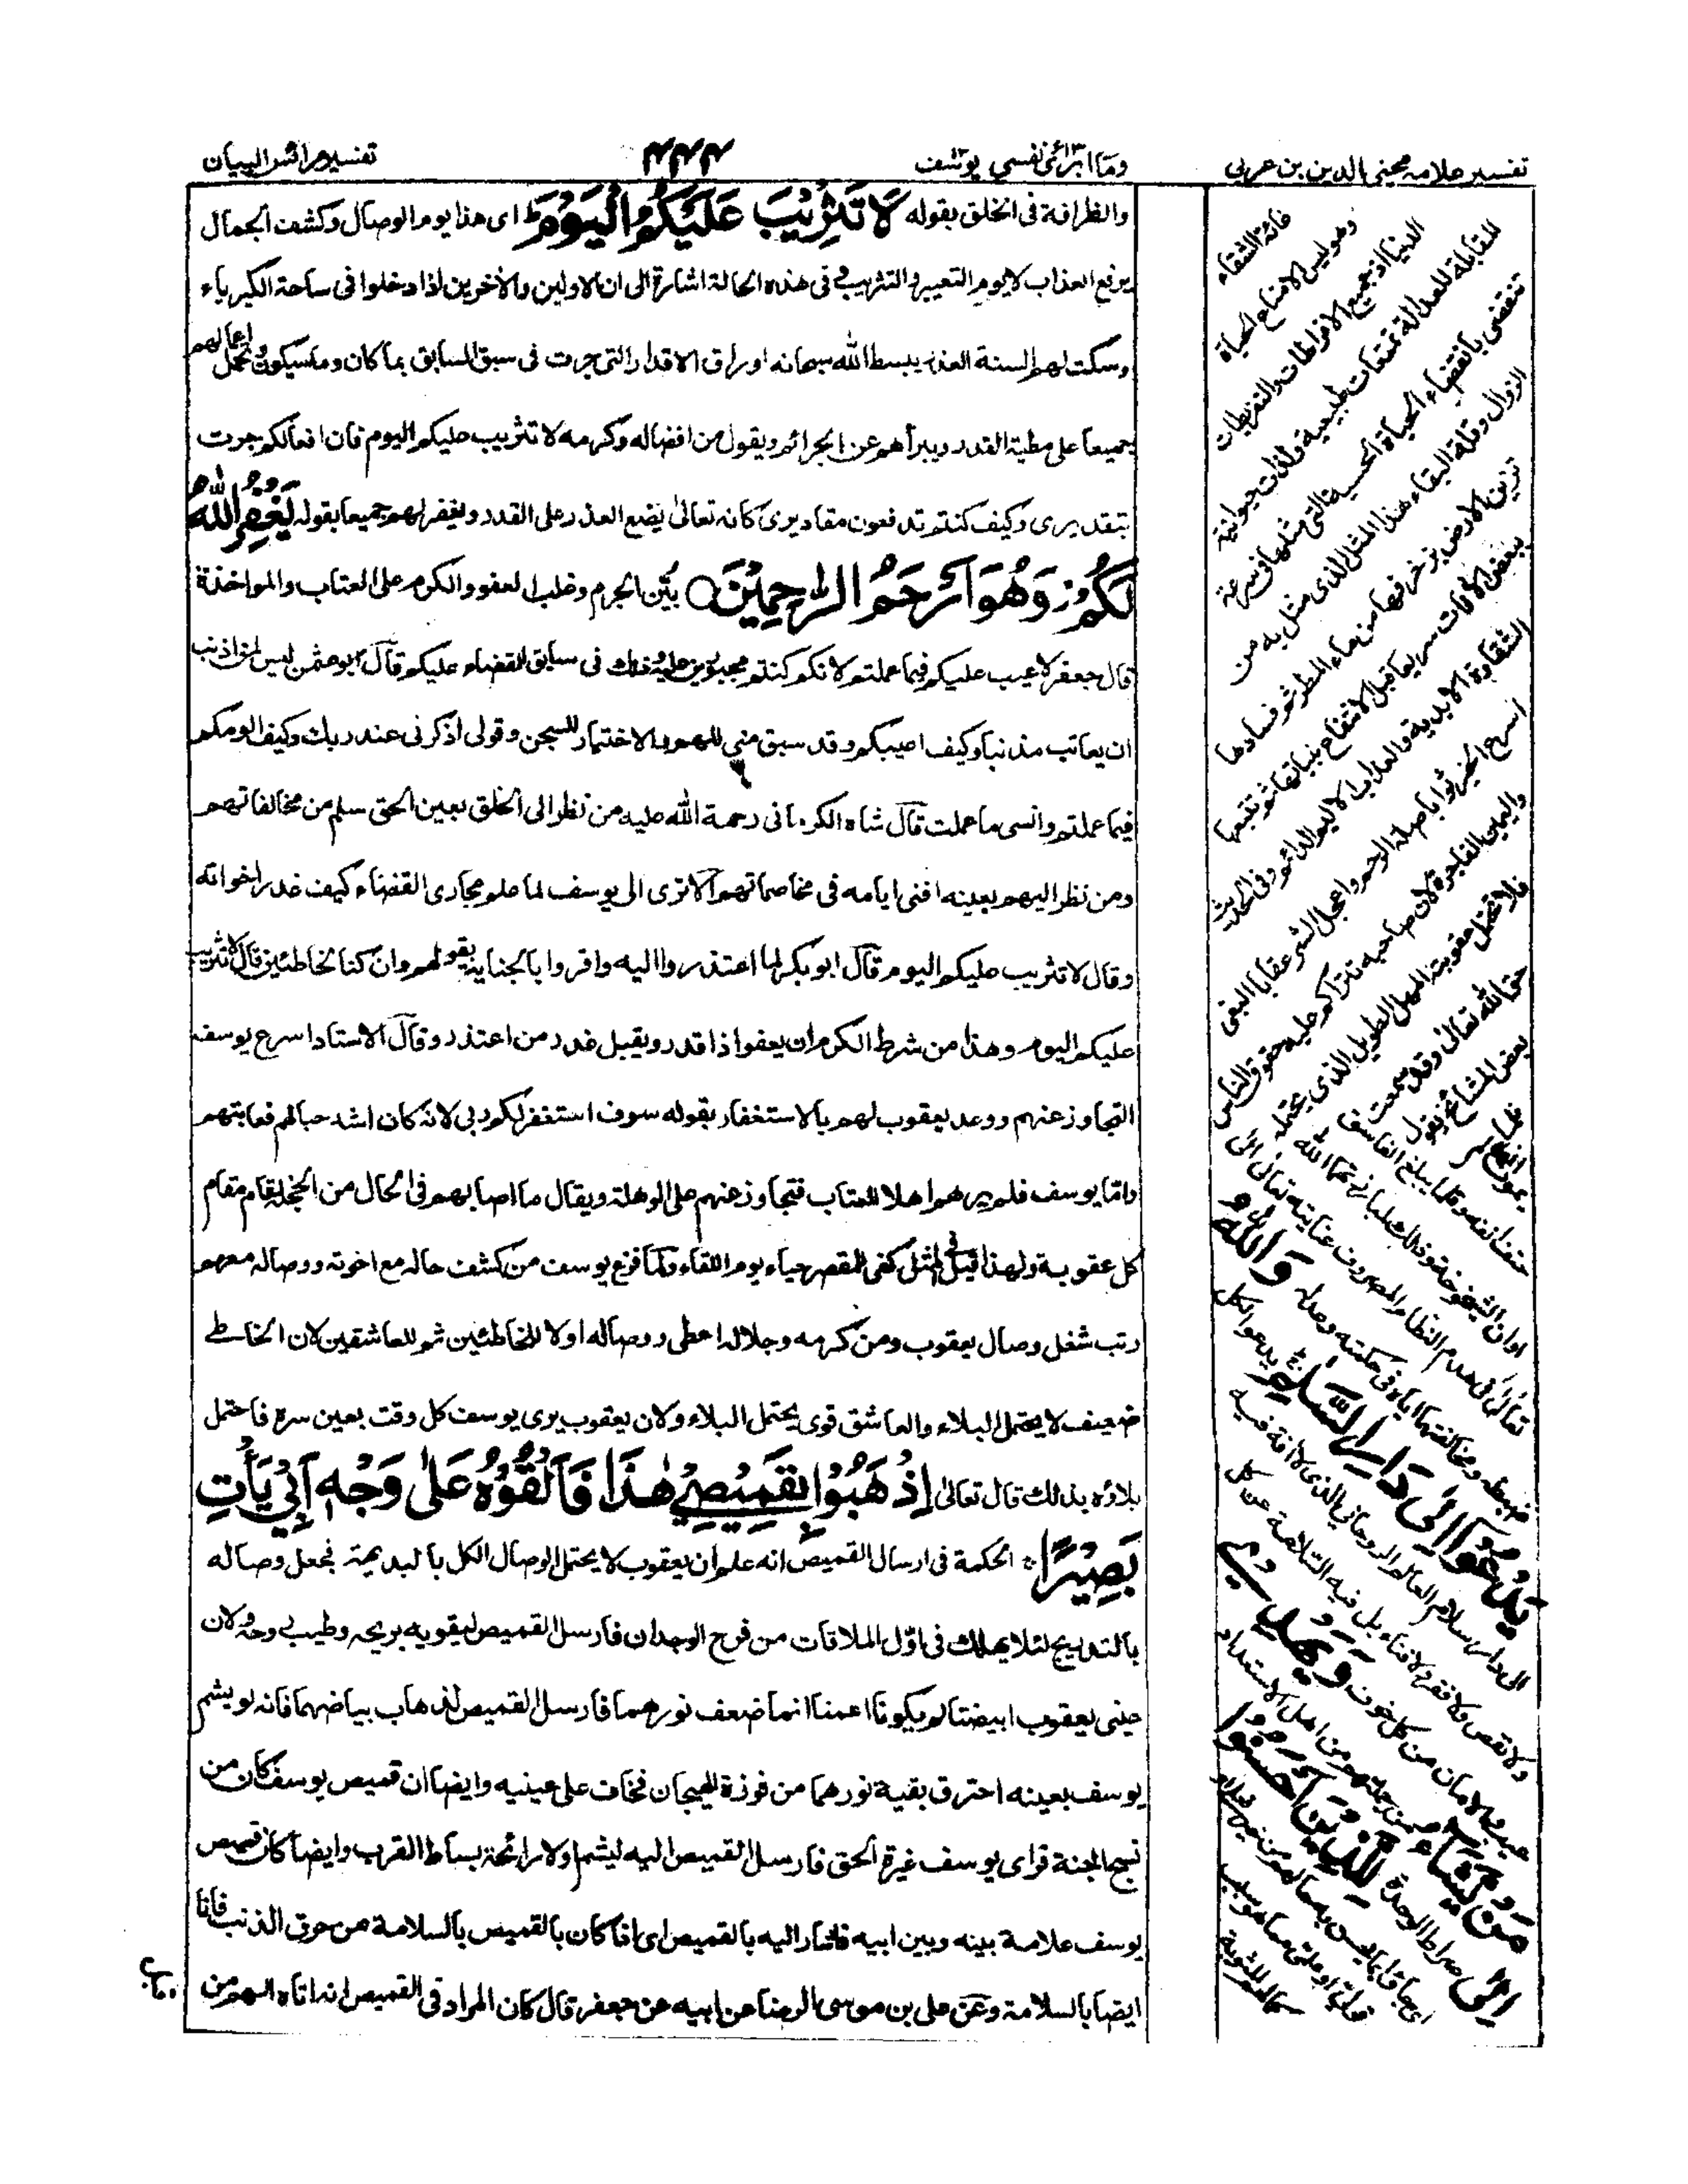 تفسير علامه محيي الدين بن عربي
وما ابرئ نفسي ١٣ يوسف ١٢
٤٤٤
تفسير عرائس البيان
والظرافة فى الخلق بقوله لَا تَثْرِيْبَ عَلَيْكُمُ الْيَوْمَ ط اى هذا يوم الوصال وكشف الجمال
يرفع العذاب لا يوم التعيير والتثريب فى هذه الحالة اشارة الى ان الاولين والاخرين اذا دخلوا فى ساحة الكبرياء
وسكت لهم السنة العذر يبسط الله سبحانه اوراق الاقدار التى جرت فى سبق السابق بما كان وما سيكون وتحمل اعمالهم
جميعا على مطية القدر ويبرأهم عن الجرائم ويقول من افضاله وكرمه لا تثريب عليكم اليوم فان افعالكم جرت
بتقديرى وكيف كنتم تدفعون مقاديرى كانه تعالى يضع العذر على القدر ويغفر لهم جميعا بقوله يَغْفِرُ اللّٰهُ
لَكُمْ ز وَهُوَ اَرْحَمُ الرّٰحِمِيْنَ ○ بيّن الجرم وغلب العفو والكرم على العتاب والمواخذة
قال جعفر لا عيب عليكم فيما عملتم لانكم كنتم مجبورين عليه وذلك فى سابق القضاء عليكم قال ابو عثمن ليس لمن اذنب
ان يعاتب مذنبا وكيف اعيبكم وقد سبق منى الهم والاختيار للسجن وقولى اذكرنى عند ربك وكيف الومكم
فيما عملتم وانسى ما عملت قال شاه الكرمانى رحمة الله عليه من نظر الى الخلق بعين الحق سلم من مخالفاتهم
ومن نظر اليهم بعينه افنى ايامه فى مخاصماتهم الا ترى الى يوسف لما علم مجارى القضاء كيف عذر اخوانه
وقال لا تثريب عليكم اليوم قال ابو بكر لما اعتذروا اليه واقروا بالجناية بقولهم وان كنا لخاطئين قال لا تثريب
عليكم اليوم وهذا من شرط الكرم ان يعفو اذا قدر ويقبل عذر من اعتذر وقال الاستاد اسرع يوسف
التجاوز عنهم ووعد يعقوب لهم بالاستغفار بقوله سوف استغفر لكم ربى لانه كان اشد حبا لهم فعاتبهم
واما يوسف فلم يرهم اهلا للعتاب فتجاوز عنهم على الوهلة ويقال ما اصابهم فى الحال من الخجلة يقام مقام
كل عقوبة ولهذا قيل فى المثل كفى للمقصر حياء يوم اللقاء ولما فرغ يوسف من كشف حاله مع اخوته ووصاله معهم
رتب شغل وصال يعقوب ومن كرمه وجلاله اعطى ووصاله اولا للخاطئين ثم للعاشقين لان الخاطى
ضعيف لا يحتمل البلاء والعاشق قوى يحتمل البلاء ولان يعقوب يرى يوسف كل وقت بعين سره فاحتمل
بلاؤه بذلك قال تعالى اِذْهَبُوْا بِقَمِيْصِيْ هٰذَا فَاَلْقُوْهُ عَلٰى وَجْهِ اَبِيْ يَأْتِ
بَصِيْرًا ج الحكمة فى ارسال القميص انه علم ان يعقوب لا يحتمل الوصال الكل بالبديهة فجعل وصاله
بالتدريج لئلا يهلك فى اول الملاقات من فرح الوجدان فارسل القميص ليقويه بريحه وطيب روحه ولان
عينى يعقوب ابيضتا لم يكونا اعمنا انما ضعف نورهما فارسل القميص لذهاب بياضهما فانه لو يشم
يوسف بعينه احترق بقية نورهما من فوزة الهيجان فخاف على عينيه وايضا ان قميص يوسف كان من
نسج الجنة فراى يوسف غيرة الحق فارسل القميص اليه ليشم اولا رائحة بساط القرب وايضا كان قميص
يوسف علامة بينه وبين ابيه فاشار اليه بالقميص اى اذا كان بالقميص بالسلامة من حرق الذئب فانا
ايضا بالسلامة وعن على بن موسى الرضا عن ابيه عن جعفر قال كان المراد فى القميص انه اتاه الهم من
فانه الشقاء
وهو ليس الا متاع الحياة
الدنيا اذ جميع الافراطات والتفريطات
للقابلة للعدالة تمتعات طبيعية ولذات حيوانية
تنقضى بانقضاء الحياة الحسية التى مثلها فى سرعة
الزوال وقلة البقاء هذا المثل الذى مثل به من
تزين الارض بزخرفها من ماء المطر ثم فسادها
ببعض الافات سريعا قبل الانتفاع بنباتها ثم تتبعها
الشقاوة الابدية والعذاب الاليم الدائم وفى الحديث
اسرع الخير ثوابا صلة الرحم واعجل الشر عقابا البغى
واليمين الفاجرة لان صاحبه تتراكم عليه حقوق الناس
فلا تحتمل عقوبته المهل الطويل الذى يحتمله
حق الله تعالى وقد سمعت
بعض المشائخ يقول
حتف انفه وقلما يبلغ الفاسق
اوان الشيخوخة وذلك لمبارزتهما الله
تعالى فى هدم النظام المصروف عنايته تعالى الى
ضبطه ومخالفتهما اياه فى حكمته وعدله وَاللّٰهُ
يَدْعُوْٓا اِلٰى دَارِ السَّلٰمِ ط يدعو الكل
الى دار سلام العالم الروحانى الذى لا افة فيه
ولا نقص ولا فقر ولا فناء بل فيه السلامة عن كل
عيب والامان من كل خوف وَيَهْدِيْ
مَنْ يَّشَآءُ من جملتهم من اهل الاستعداد
اِلٰى صراط الوحدة لِلَّذِيْنَ اَحْسَنُوا